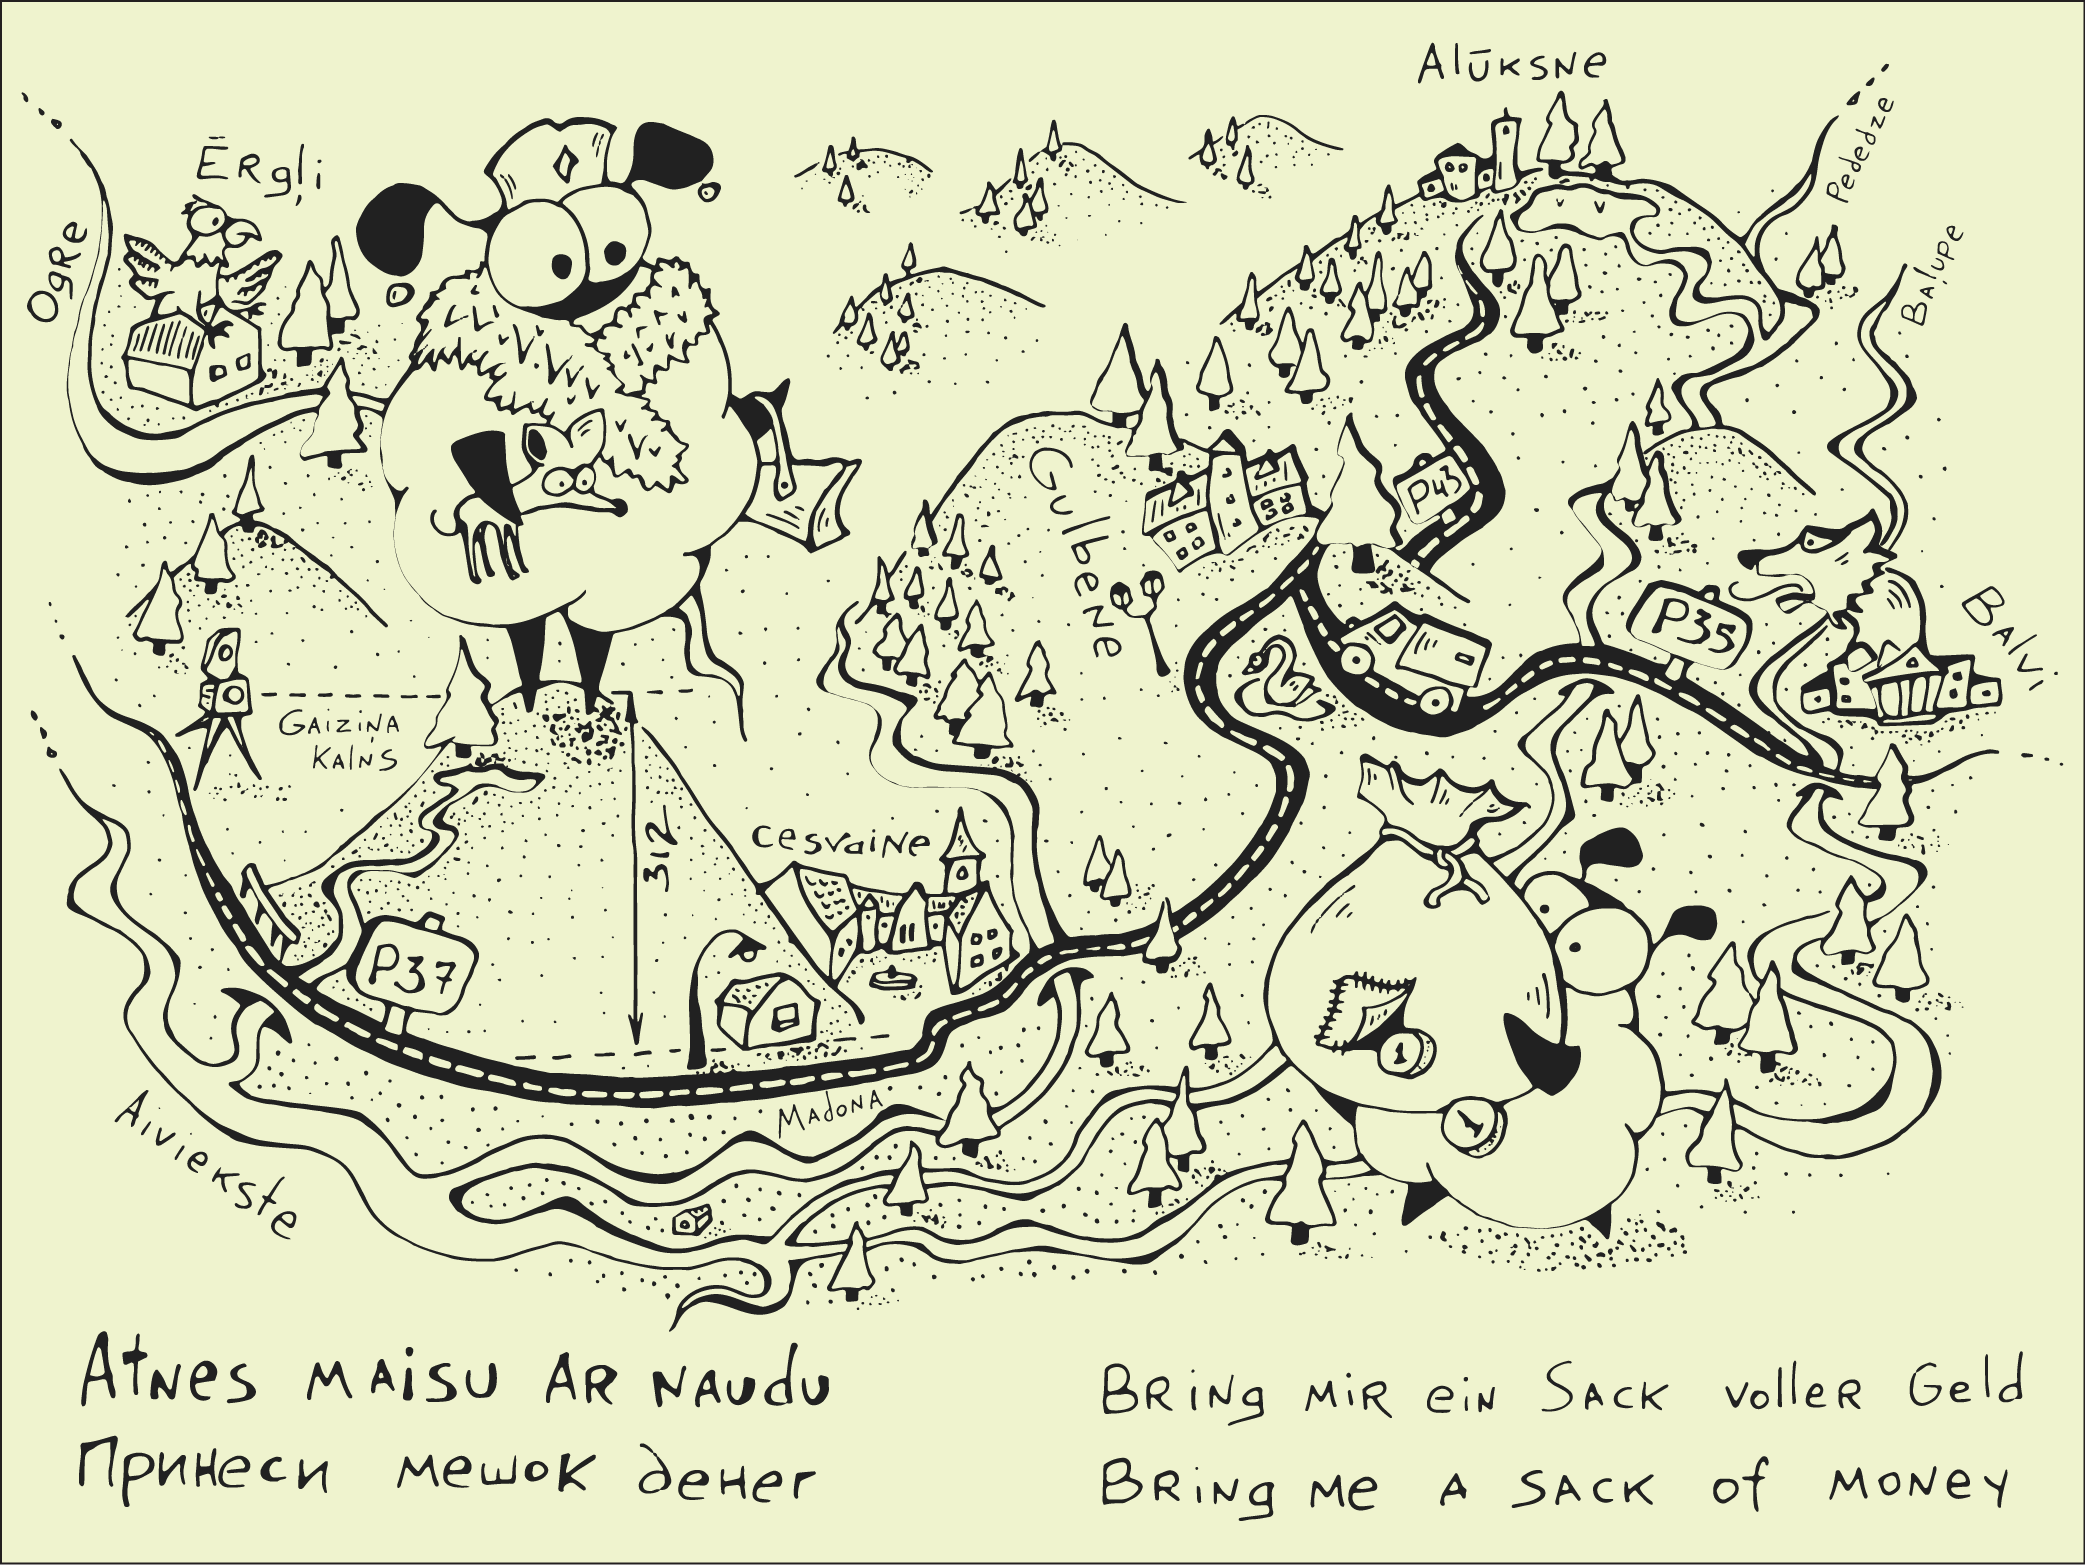 Alūksne
Ērgļi
Ogre
Pededze
Balupe
Gulbene
P43
P35
Balvi
Gaiziņa
kalns
312
Cesvaine
P37
Madona
Aiviekste
1
1
Atnes maisu ar naudu
Принеси мешок денег
Bring mir ein Sack voller Geld
Bring me a sack of money